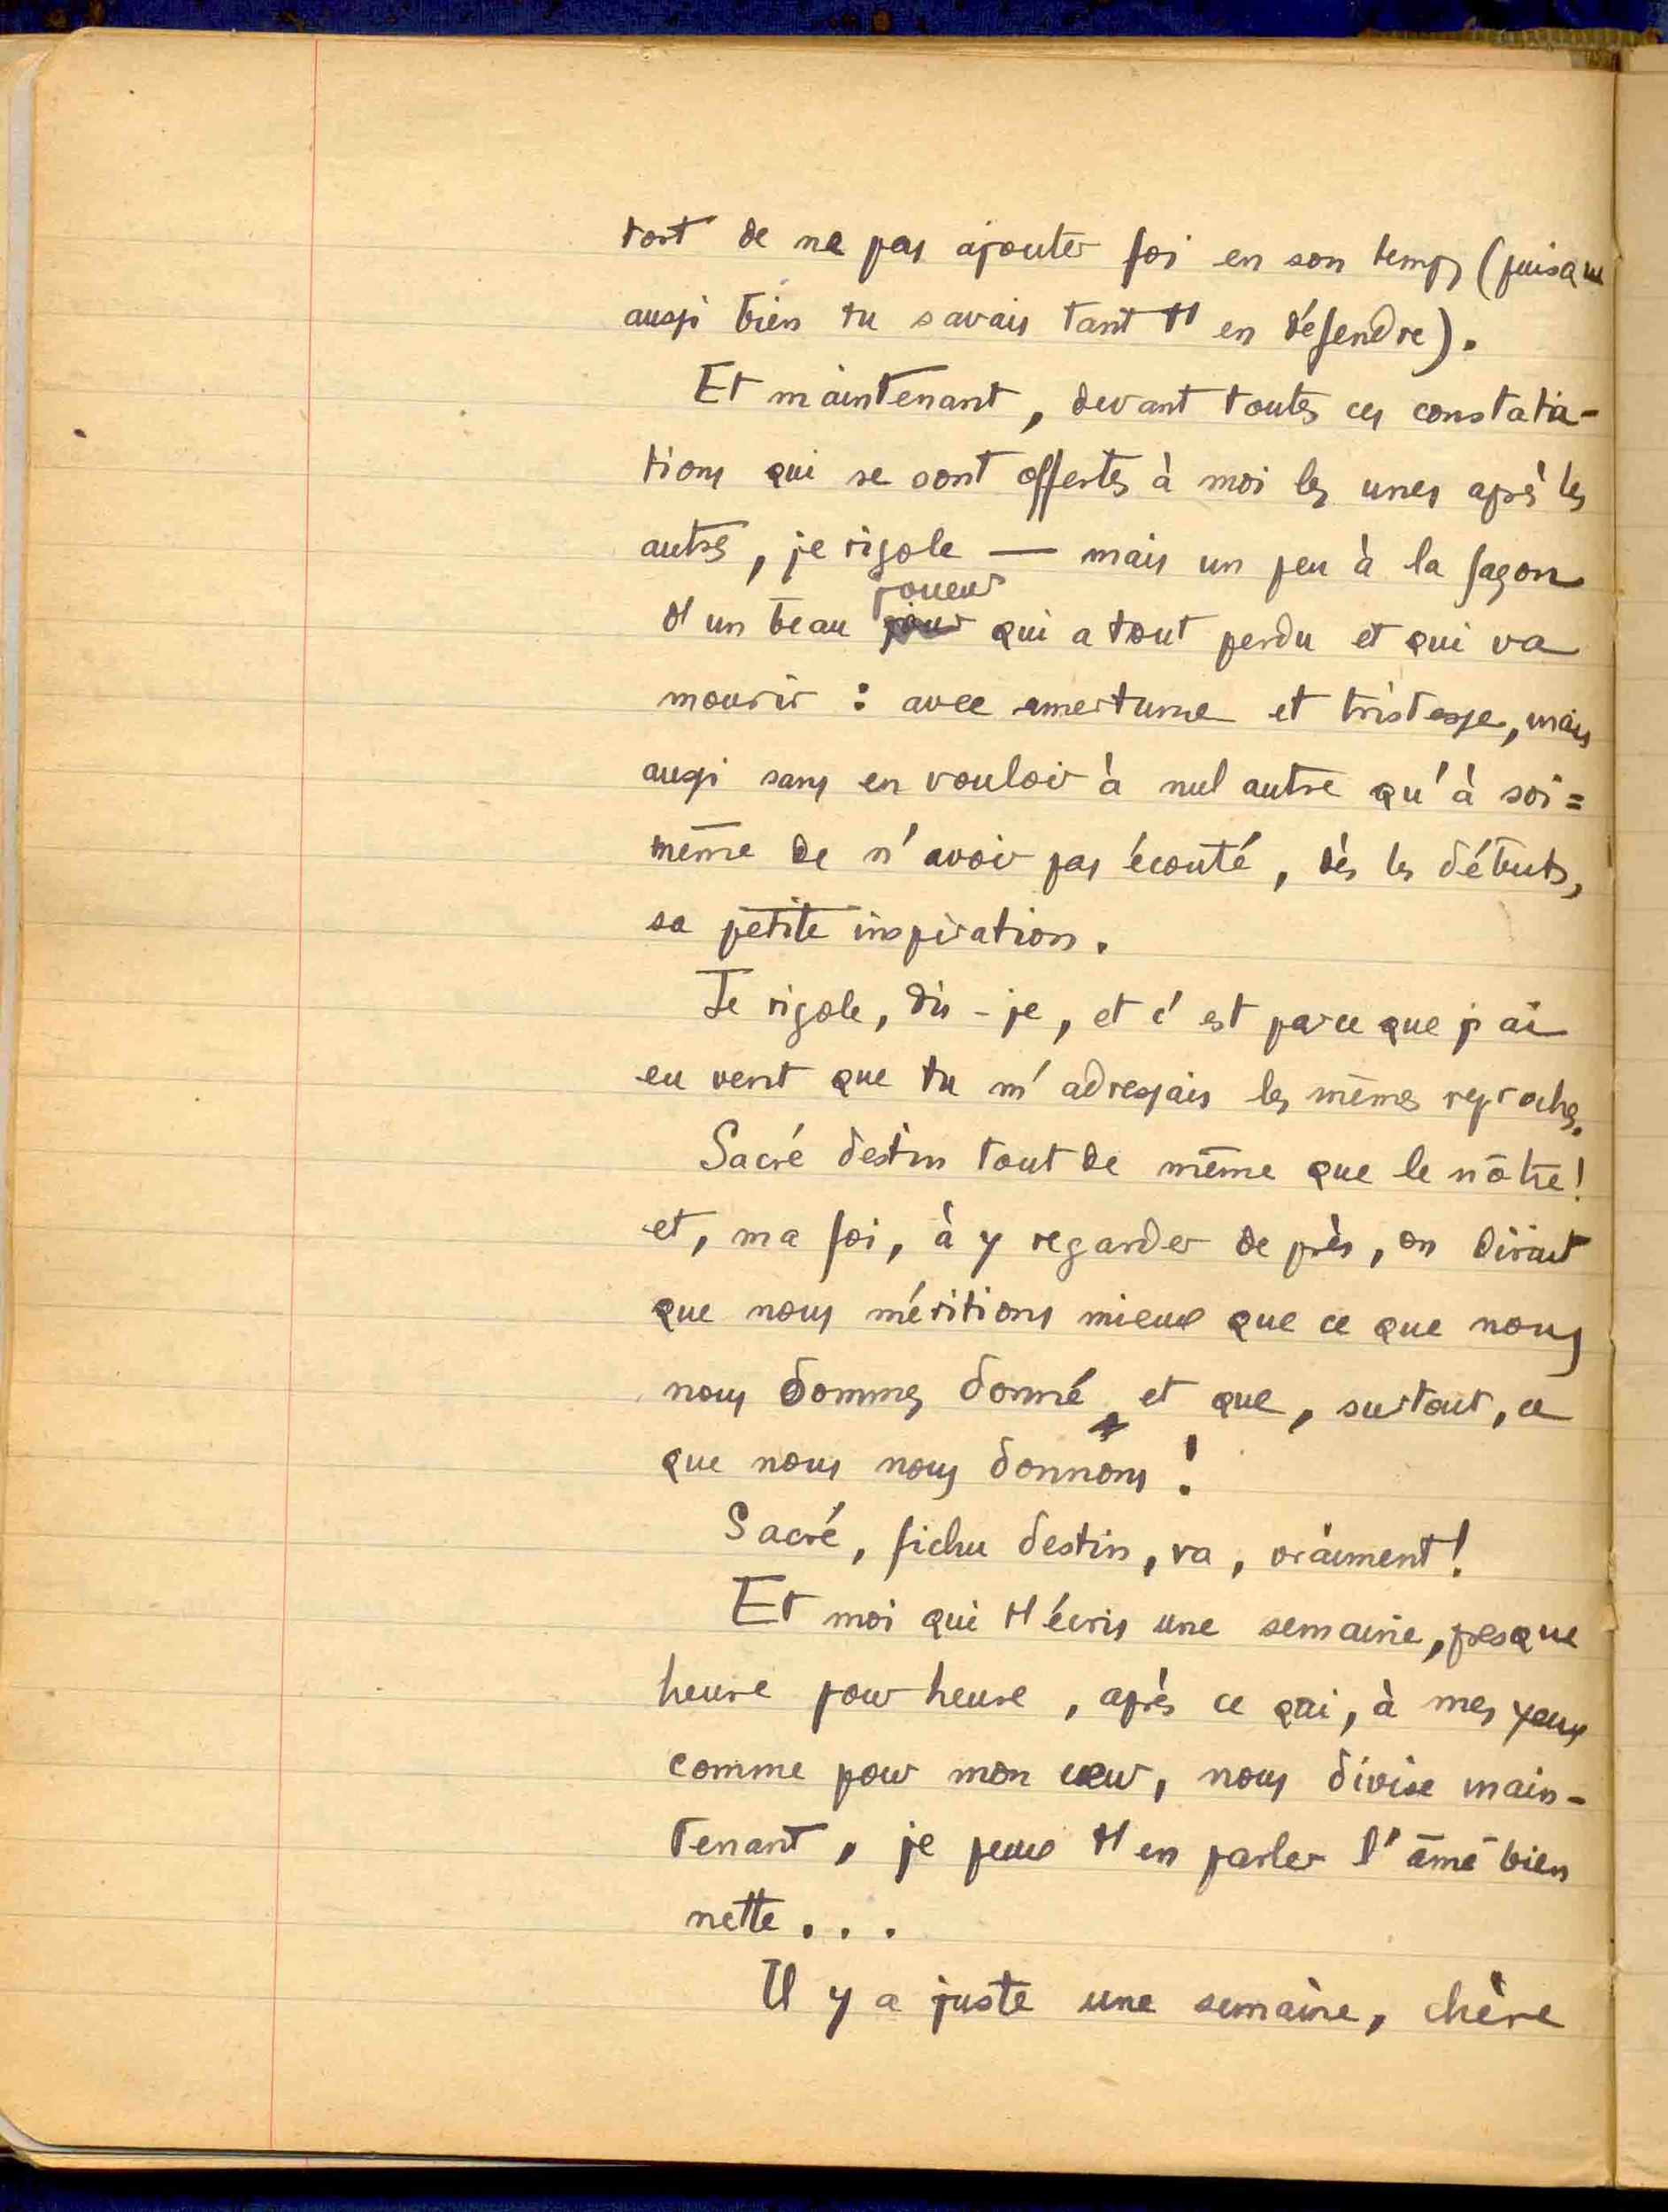 tort de ne pas ajouter foi en son temps (puisque
aussi bien tu savais tant t'en défendre).
Et maintenant, devant toutes ces constata-
tions qui se sont offertes à moi les unes après les
autres, je rigole — mais un peu à la façon
d'un beau joueur qui a tout perdu et qui va
mourir : avec amertume et tristesse, mais
aussi sans en vouloir à nul autre qu'à soi=
même de n'avoir pas écouté, dès les débuts,
sa petite inspiration.
Je rigole, dis-je, et c'est parce que j'ai
eu vent que tu m'adressais les mêmes reproches.
Sacré destin tout de même que le nôtre!
et, ma foi, à y regarder de près, on dirait
que nous méritions mieux que ce que nous
nous sommes donné et que, surtout, ce
que nous nous donnons!
Sacré, fichu destin, va, vraiment!
Et moi qui t'écris une semaine, presque
heure pour heure, après ce qui, à mes yeux
comme pour mon cœur, nous divise main-
tenant, je peux t'en parler l'âme bien
nette...
Il y a juste une semaine, chère